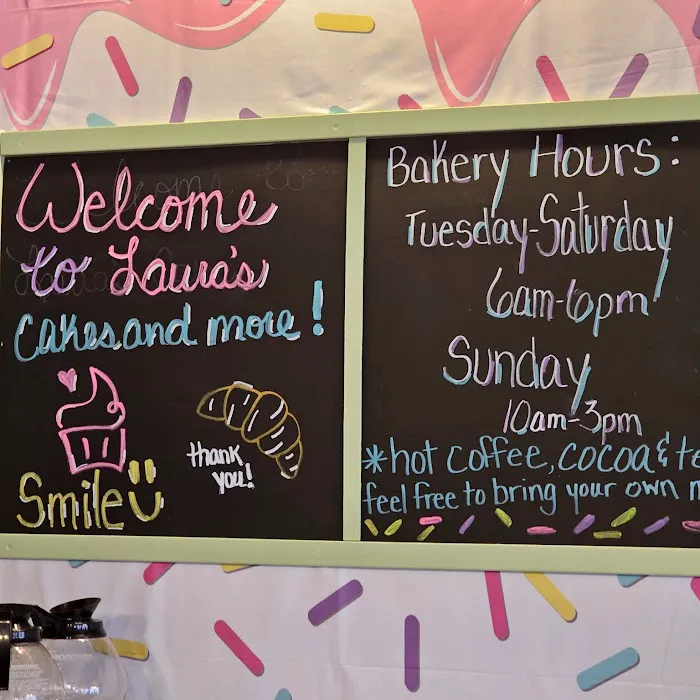 Welcome
to Laura's
Cakes and more!
thank
you!
Smile
Bakery Hours:
Tuesday-Saturday
6am-6pm
Sunday
10am-3pm
*hot coffee, cocoa & te
feel free to bring your own